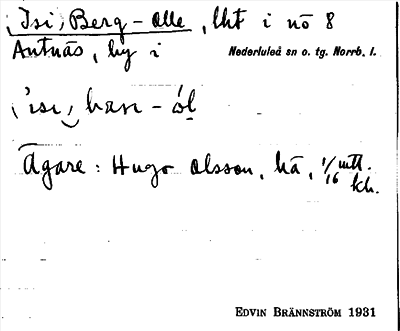 (Isi) Berg-Olle, lht i nö 8
Antnäs, by i Nederluleå sn o. tg. Norrb. l.
Ägare: Hugo Olsson, hä, 1/16 mtl.
kh.
EDVIN BRÄNNSTRÖM 1931